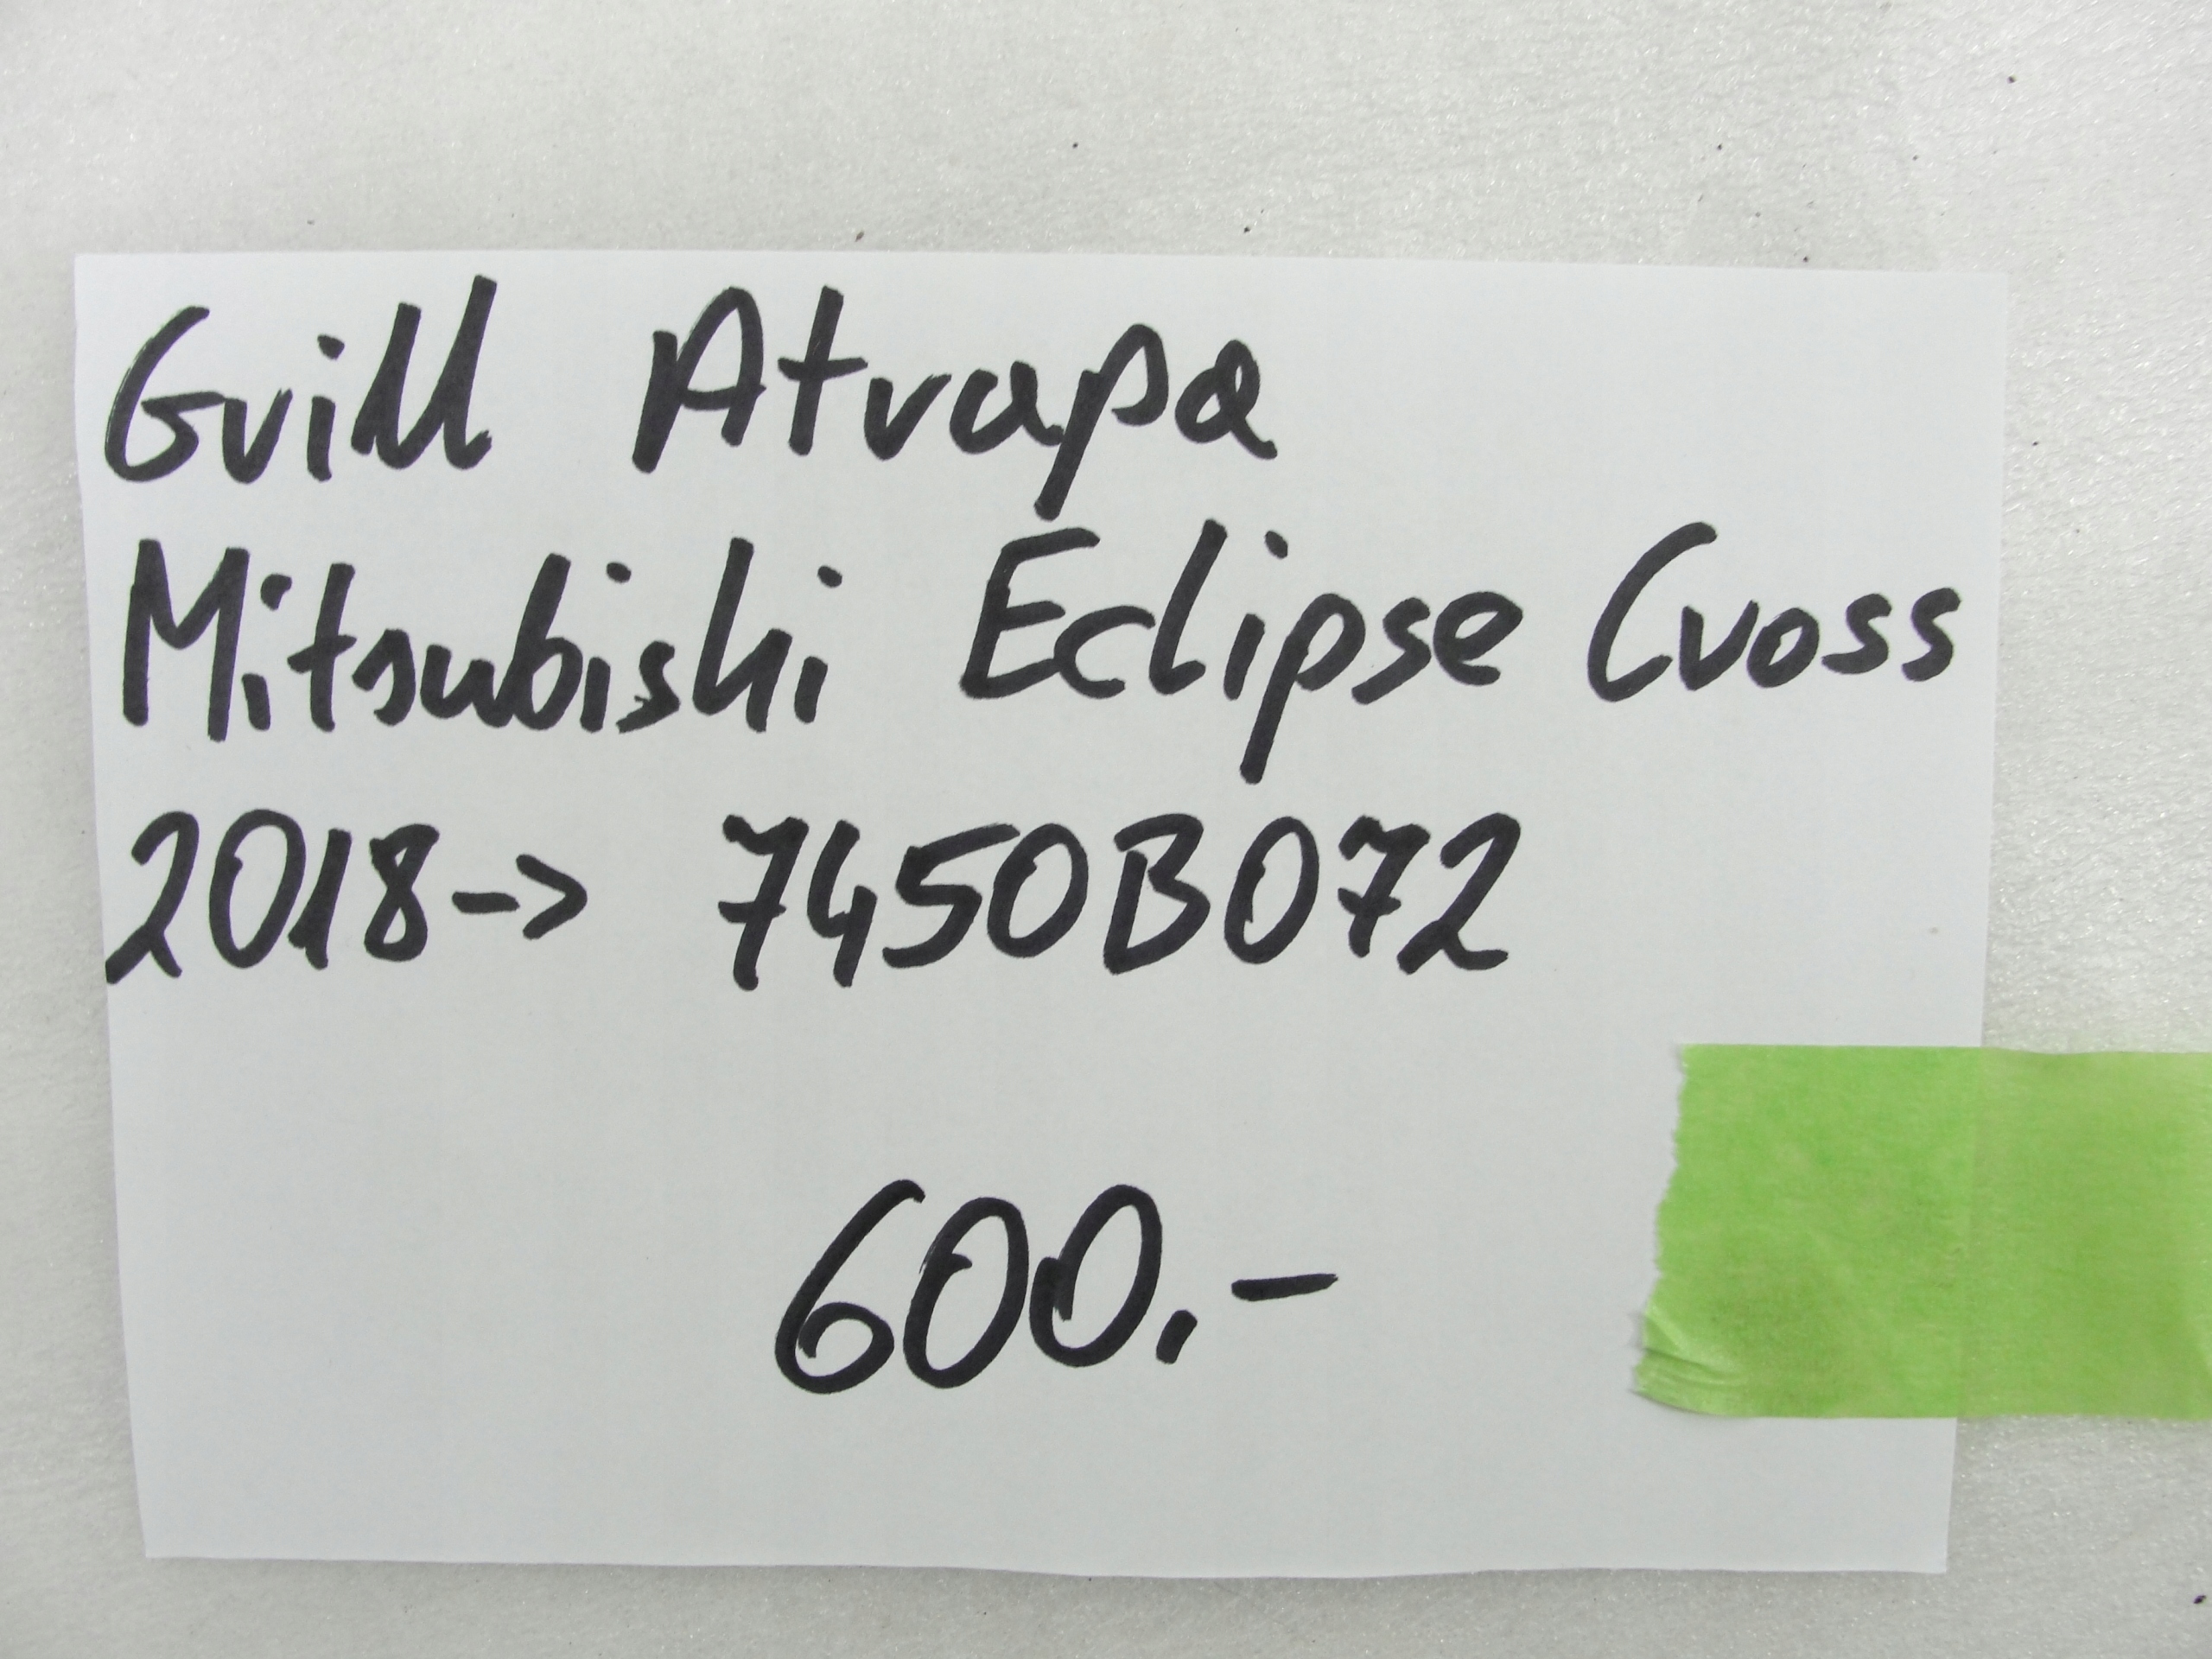 Grill Atrapa
Mitsubishi Eclipse Cross
2018-> 7450B072
600.-